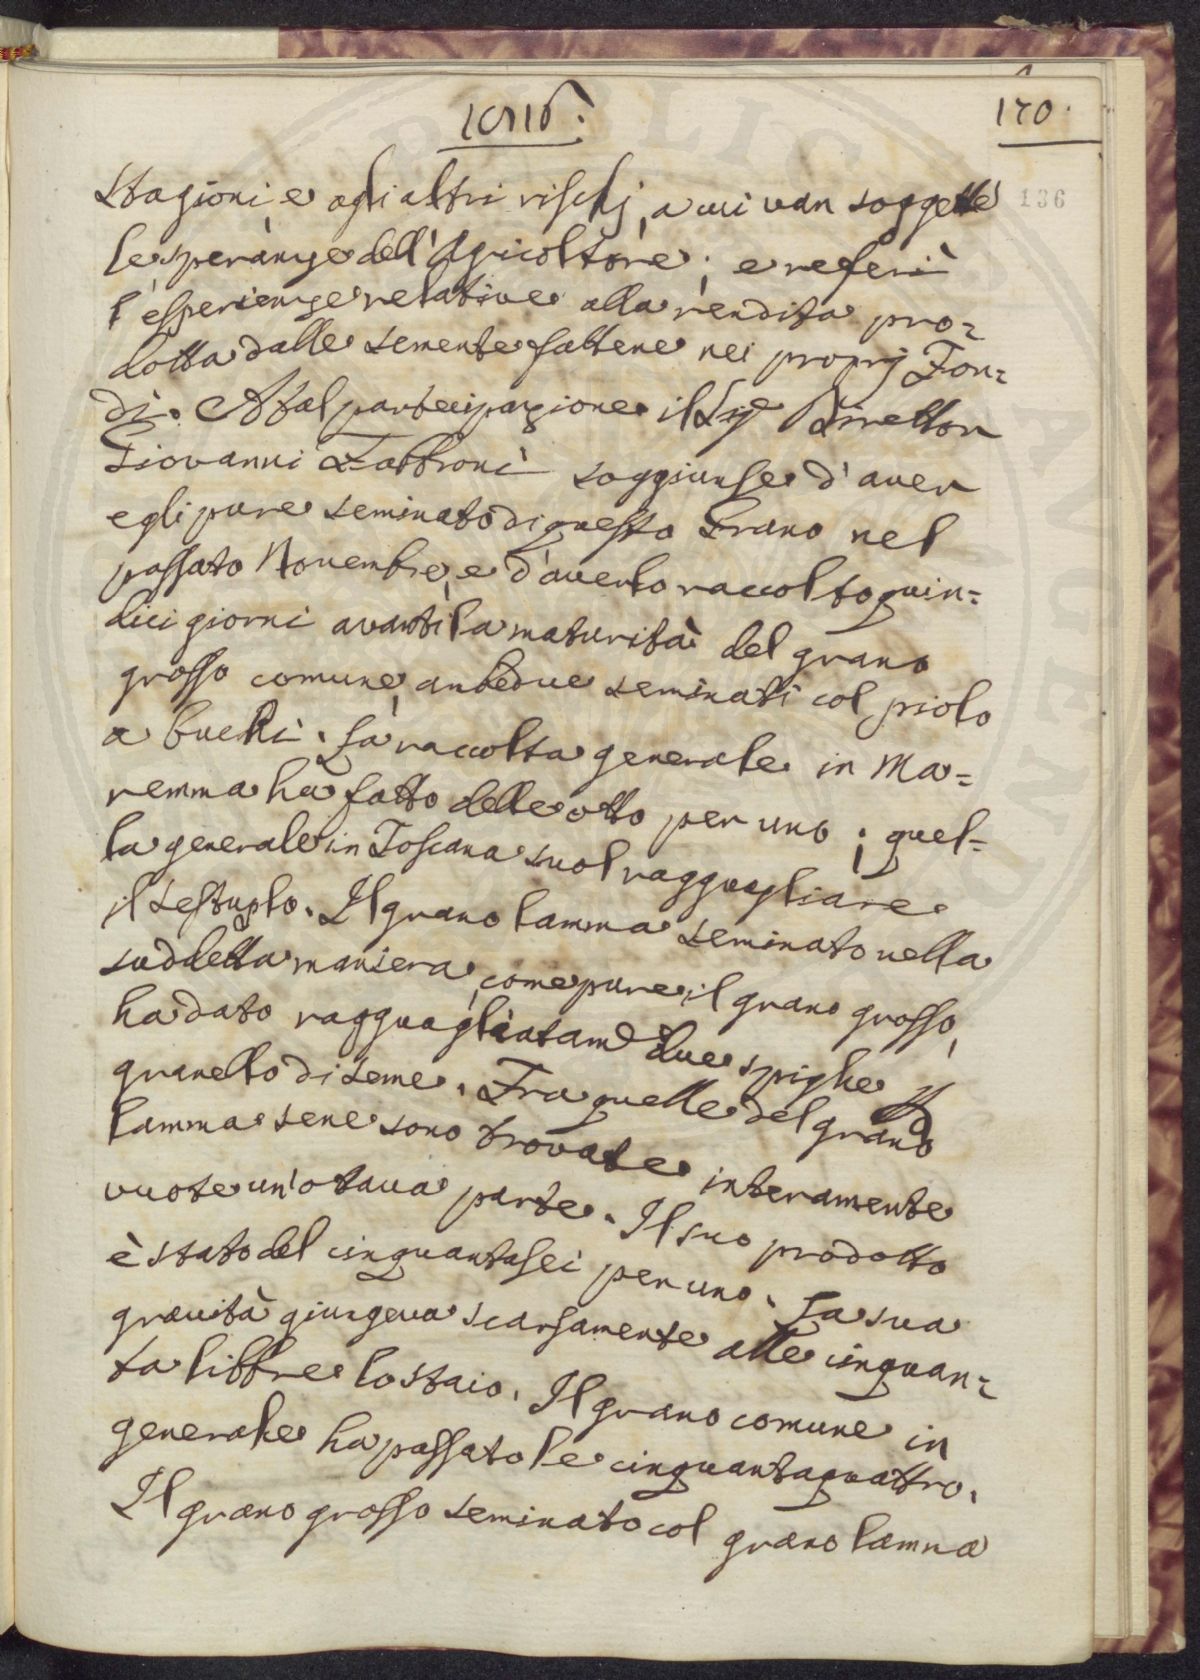 170.
136
Stagioni, e agli altri rischj, a cui van soggette
le speranze dell'Agricoltore; e referì
l'esperienze relative alla rendita pro=
dotta dalle semente fattene nei proprj Fon=
di. A tal partecipazione il Sig.e Direttor
Giovanni Fabbroni soggiunse d'aver
egli pure seminato di questo Grano nel
passato Novembre, e d'averlo raccolto quin=
dici giorni avanti la maturità del grano
grosso comune, ambedue seminati col piolo
a buchi. La raccolta generale in Ma=
remma ha fatto delle otto per uno; quel=
la generale in Toscana suol ragguagliare
il sestuplo. Il grano lamma seminato nella
suddetta maniera, come pure il grano grosso,
ha dato ragguagliatam.e due spighe p
granello di seme. Fra quelle del grano
lamma sene sono trovate interamente
vuote un'otava parte. Il suo prodotto
è stato del cinquantasei per uno. La sua
gravità giungeva scarsamente alle cinquan=
ta libbre lo staio. Il grano comune in
generale ha passato le cinquantaquattro.
Il grano grosso seminato col grano lamma